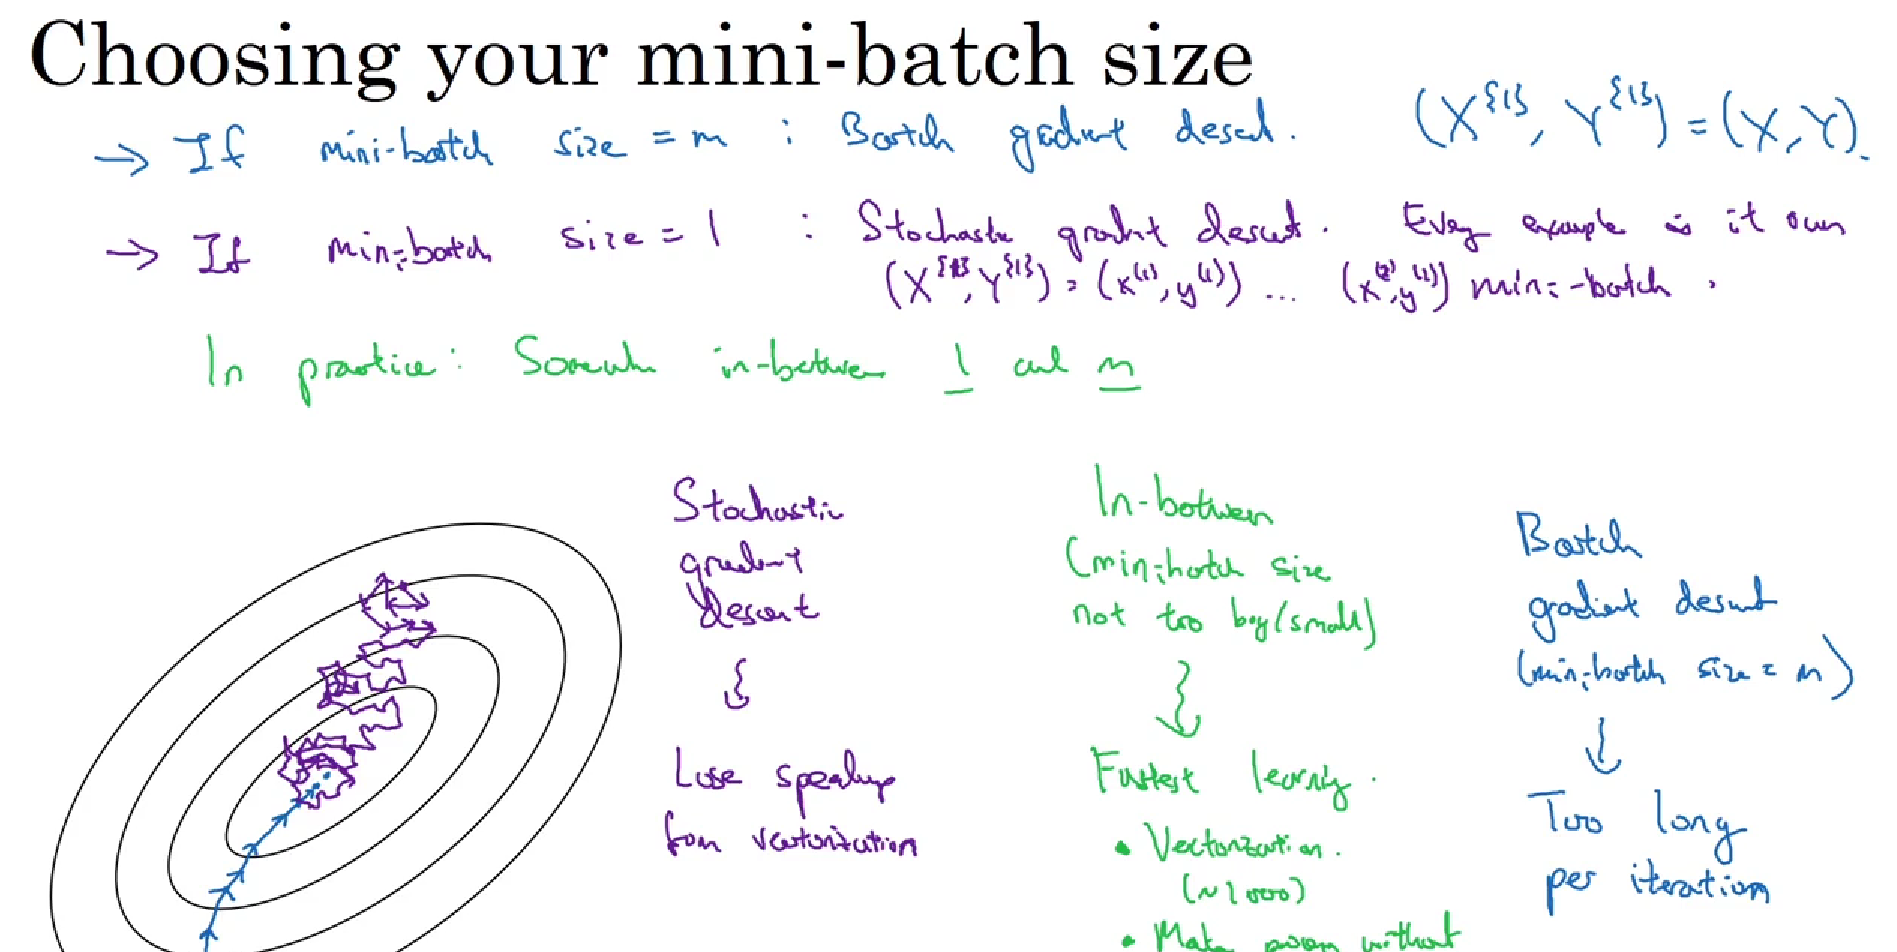 Choosing your mini-batch size
→ If mini-batch size = m : Batch gradient descent. (X^{1}, Y^{1}) = (X, Y).
→ If mini-batch size = 1 : Stochastic gradient descent. Every example is it own
(X^{1}, Y^{1}) = (x^(1), y^(1)) ... (x^(2), y^(2)) mini-batch.
In practice: Somewhere in-between 1 and m
Stochastic
gradient
descent
Lose speedup
from vectorization
In-between
(mini-batch size
not too big/small)
Fastest learning.
• Vectorization.
(~1000)
• Make progress without
Batch
gradient descent
(mini-batch size = m)
Too long
per iteration